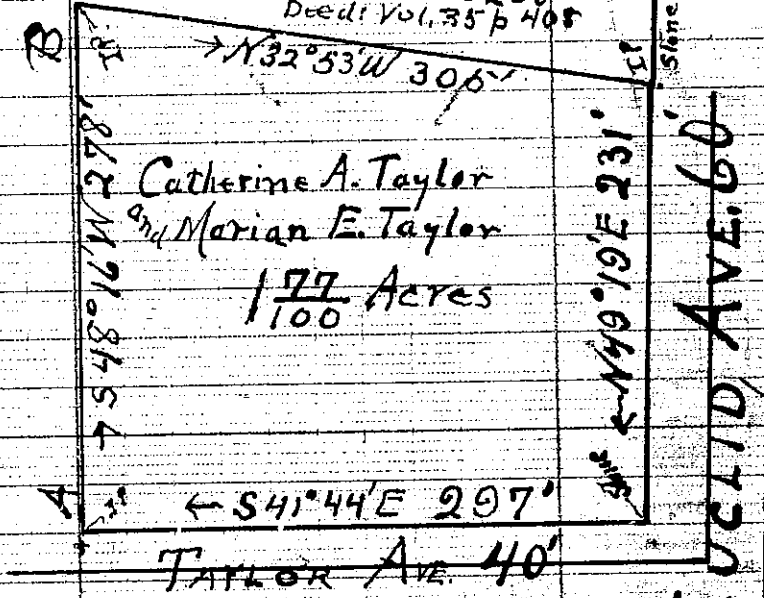 Deed: Vol. 35 p 408
B
I.P.
→ N 32° 53' W 305'
I.P.
Stone
S 48° 16' W 278'
Catherine A. Taylor
and Marian E. Taylor
1 77/100 Acres
N 49° 19' E 231'
UCLID AVE. 60'
A
I.P.
← S 41° 44' E 297'
TAYLOR AVE. 40'